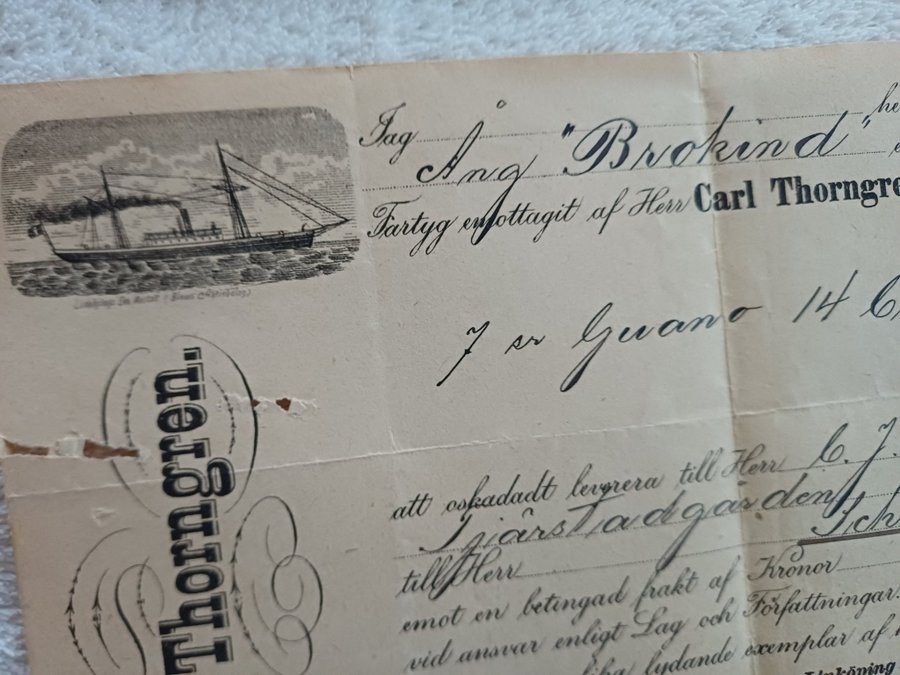 Jag he
Ång "Brokind"
Fartyg emottagit af Herr Carl Thorngre
7 sr Guano 14 C
att oskadadt leverera till Herr C. J.
Tjärstadgården
till Herr
emot en betingad frakt af Kronor
vid ansvar enligt Lag och Författningar.
lika lydande exemplar af
Linköping
Thorngren.